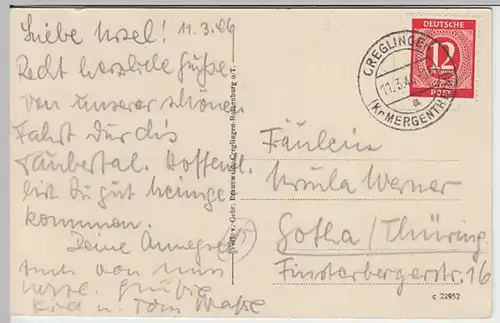 Liebe Ursel! 11.3.46
Recht herzliche Grüße
von unserer schönen
Fahrt durchs
Taubertal. Hoffentl.
bist Du gut heimge
kommen.
Deine Annegret
Auch von mir
herzl. Grüße
Verl. v. Gebr. Braunwald, Creglingen-Rothenburg o/T.
DEUTSCHE
12
POST
CREGLINGEN
11.3.46
a
(Kr MERGENTH
Fräulein
Ursula Werner
Gotha/Thüring.
Finsterbergerstr. 16
C 22932